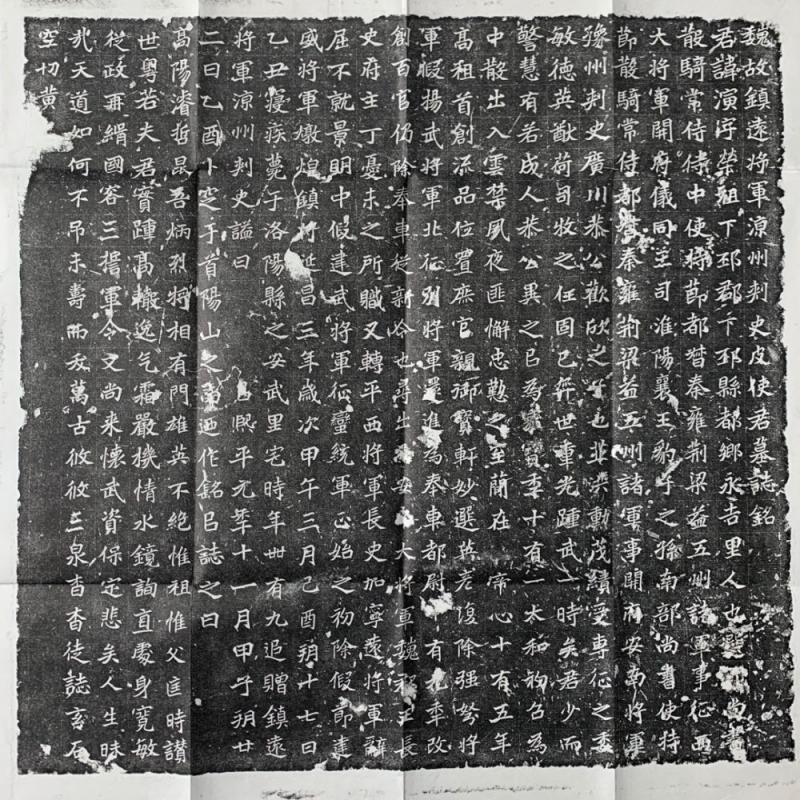 魏故鎮遠將軍涼州刾史皮使君墓誌銘
君諱演字榮祖下邳郡下邳縣都鄉永吉里人也 尚書
散騎常侍侍中使持節都督秦雍荊梁益五州諸軍事征西
大將軍開府儀同三司淮陽襄王豹子之孫南部尚書使持
節散騎常侍都督秦雍荊梁益五州諸軍事開府安南將軍
豫州刾史廣川恭公歡欣之子也 動茂績受專征之委
敏德英猷荷司牧之任固已弈世重光踵武一時矣君少而
警慧有若成人恭公異之以為 寶年十有一太和初召為
中散出入雲禁夙夜匪懈忠懃之至蘭在 帝心十有五年
高祖首創流品位置庶官親御寶軒妙選英彥復除强弩將
軍假揚武將軍北征別將軍還進為奉車都尉 有九年改
創百官仍除奉車從新令也尋出 安 大將軍魏 王長
史府主丁憂未之所職又轉平西將軍長史加寧遠將軍辭
屈不就景明中假建武將軍征蠻統軍正始之初除假節建
威將軍燉煌鎮將延昌三年歲次甲午三月己酉朔十七日
乙丑寢疾薨于洛陽縣之安武里宅時年卌有九追贈鎮遠
將軍涼州刾史謚曰 以熙平元年十一月甲子朔廿
二日乙酉卜窆于首陽山之 迺作銘以誌之曰
高陽濬哲昆吾炳烈將相有門雄英不絕惟祖惟父匡時讚
世粵若夫君寔踵高轍逸气霜嚴機情水鏡詢直處身寬敏
從政再縎國容三摠軍令文尚来懷武資保定悲矣人生昧
㦲天道如何不弔未壽而夭萬古攸攸三泉杳杳徒誌玄石
空切黄